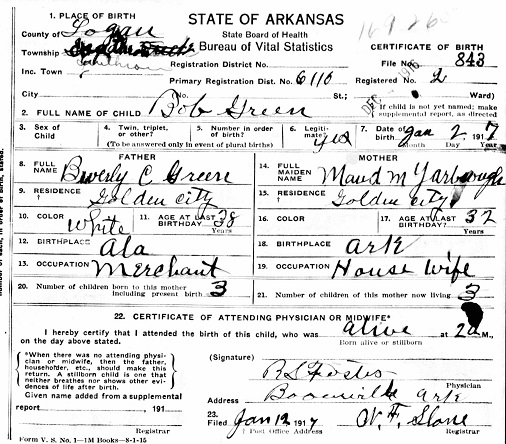 1. PLACE OF BIRTH
STATE OF ARKANSAS
County of Logan
State Board of Health
Bureau of Vital Statistics
CERTIFICATE OF BIRTH
Township
Registration District No.
File No. 843
Inc. Town
Primary Registration Dist. No. 6110
Registered No. 2
City (No. St.; Ward)
DEC
2. FULL NAME OF CHILD Bob Green
{ If child is not yet named; make supplemental report, as directed
3. Sex of Child
4. Twin, triplet, or other?
5. Number in order of birth?
(To be answered only in event of plural births)
6. Legitimate? yes
7. Date of birth Jan 2 1917
Month Day
FATHER
MOTHER
8. FULL NAME Beverly C Greene
14. FULL MAIDEN NAME Maud M Yarbrough
9. RESIDENCE Golden City
15. RESIDENCE Golden City
10. COLOR White
11. AGE AT LAST BIRTHDAY 38 Years
16. COLOR
17. AGE AT LAST BIRTHDAY? 32 Years
12. BIRTHPLACE Ala
18. BIRTHPLACE Ark
13. OCCUPATION Merchant
19. OCCUPATION House wife
20. Number of children born to this mother including present birth 3
21. Number of children of this mother now living 3
22. CERTIFICATE OF ATTENDING PHYSICIAN OR MIDWIFE*
I hereby certify that I attended the birth of this child, who was alive at 2a M.,
on the day above stated.
Born alive or stillborn
{ *When there was no attending physician or midwife, then the father, householder, etc., should make this return. A stillborn child is one that neither breathes nor shows other evidences of life after birth. }
(Signature)
Physician
Given name added from a supplemental
Address Booneville Ark
report 191
23. Filed Jan 12 1917
† Post Office Address
Registrar
Registrar
Form V. S. No. 1—1M Books—8-1-15